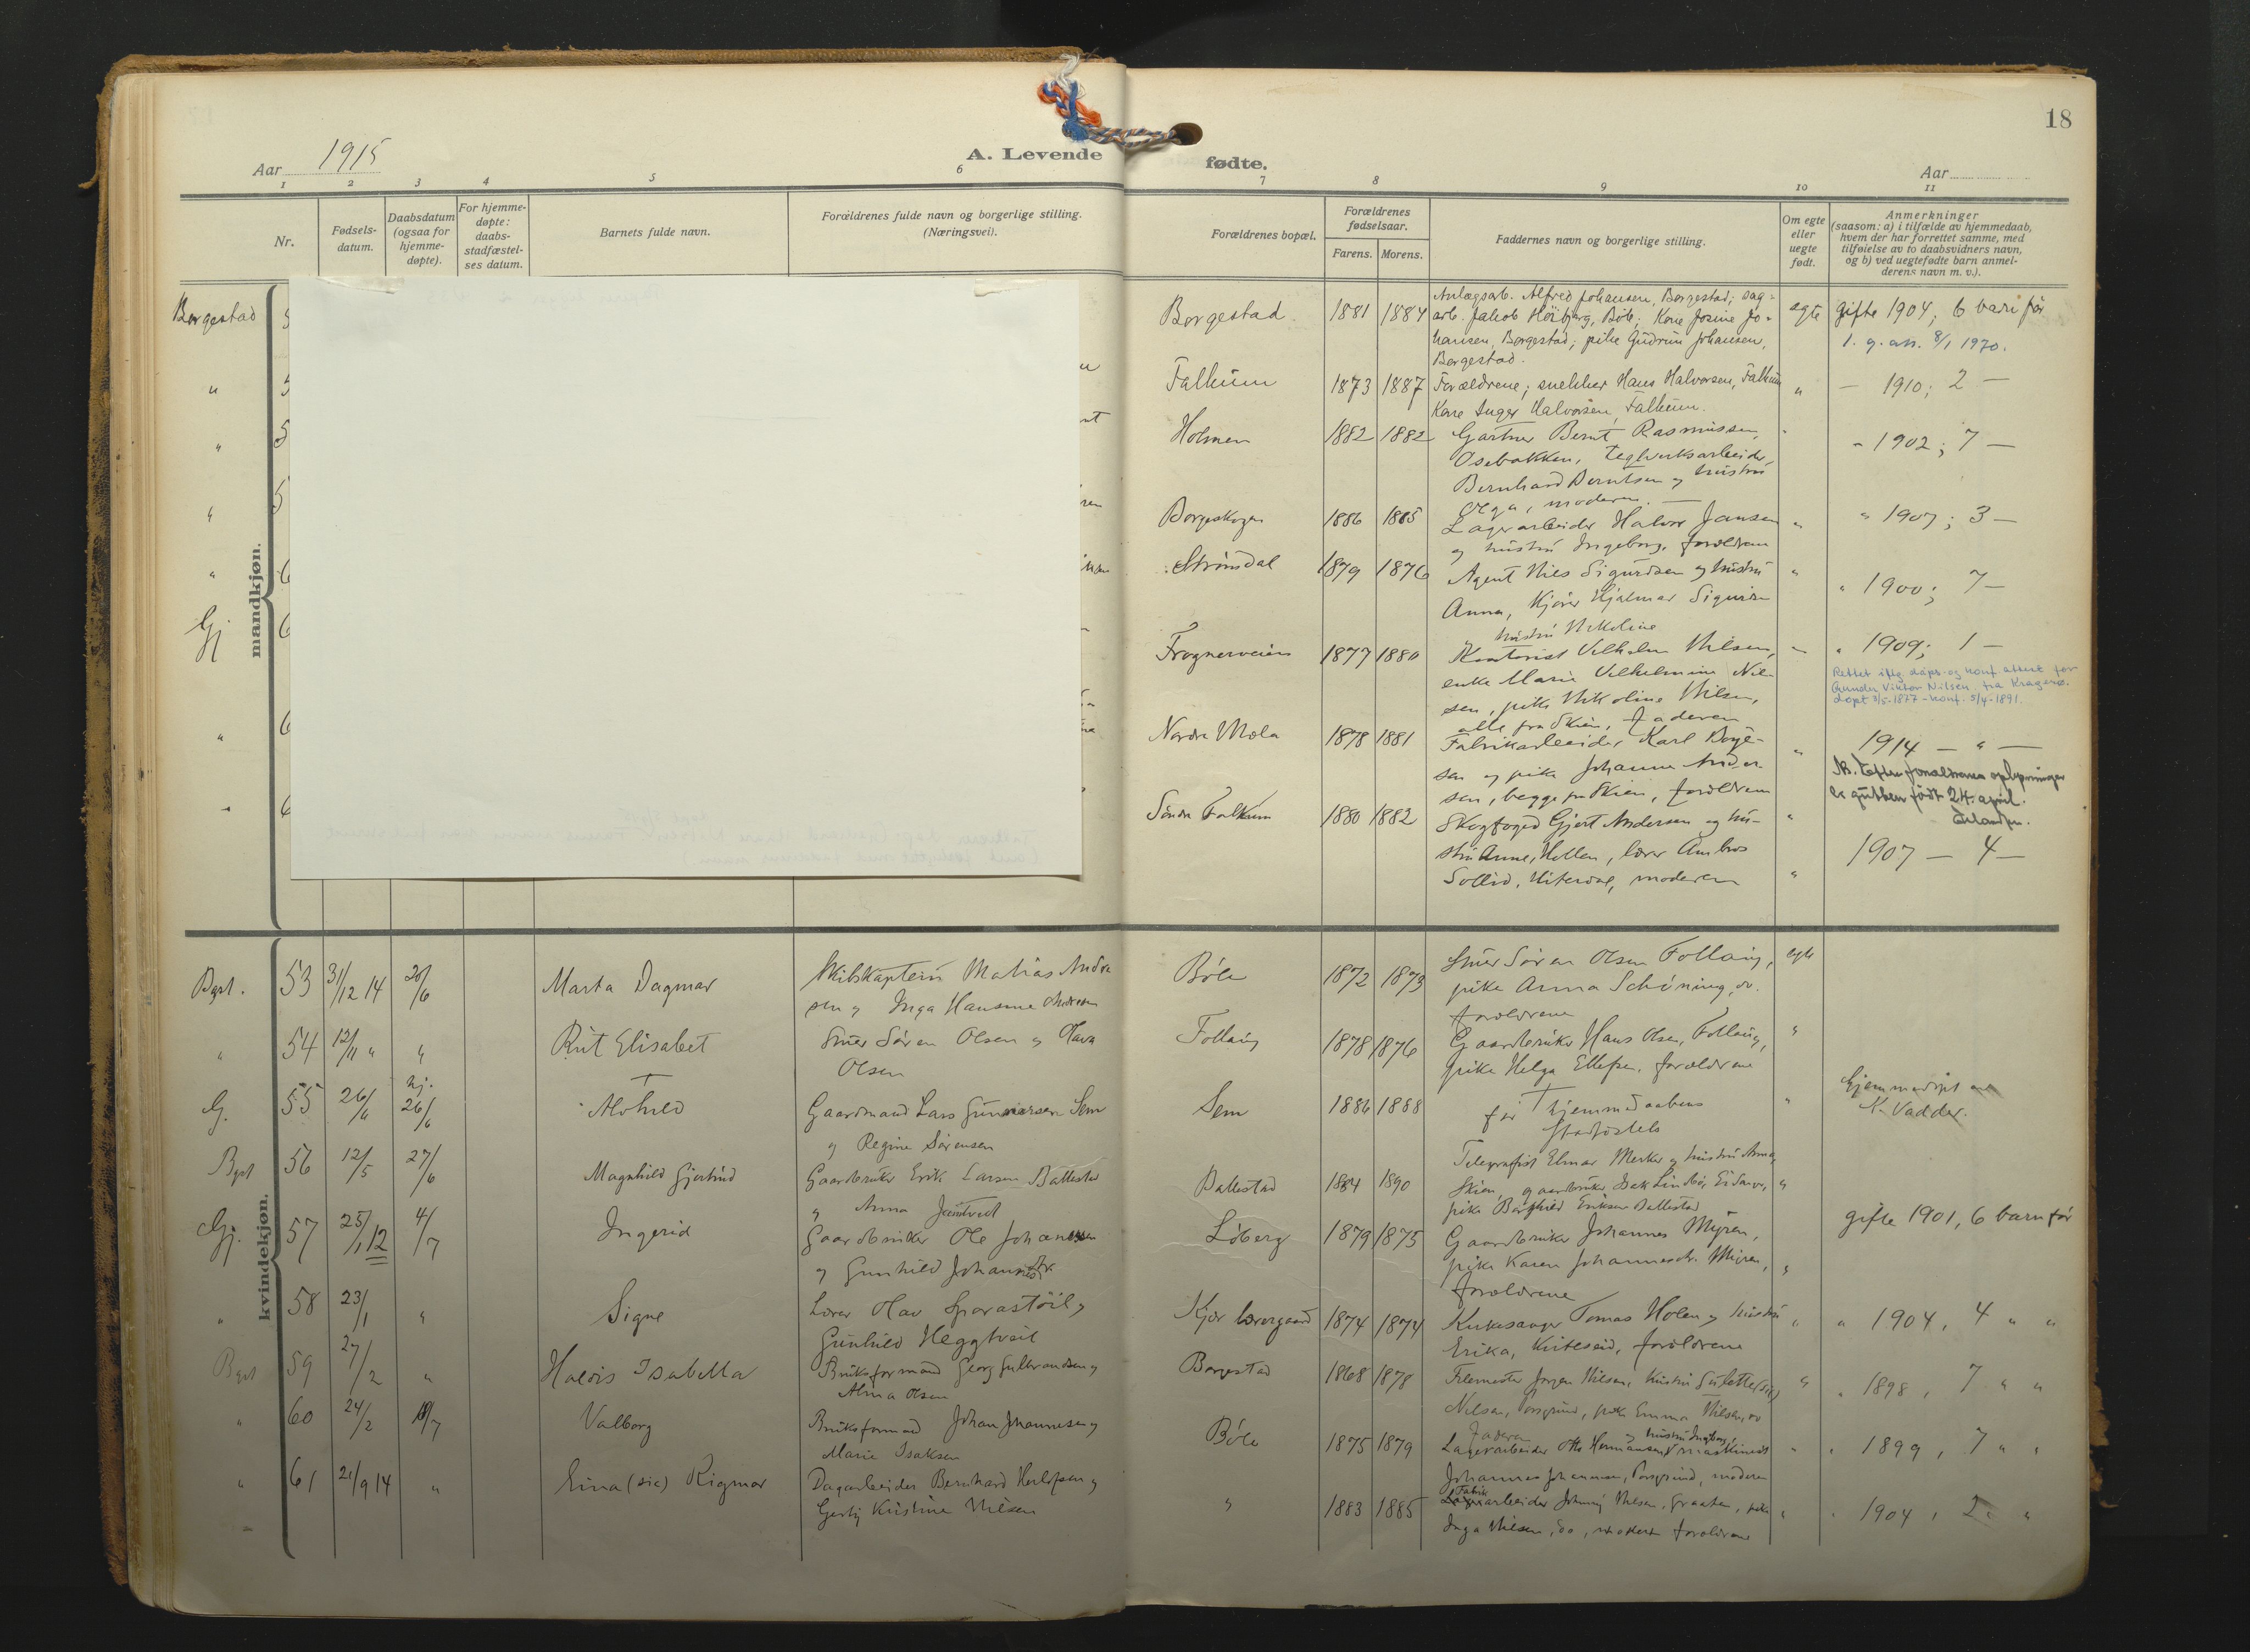 18
Aar 1915
A. Levende fødte.
Aar
1 2 3 4 5 6 7 8 9 10 11
Nr.
Fødsels-
datum.
Daabsdatum
(ogsaa for
hjemme-
døpte).
For hjemme-
døpte:
daabs-
stadfæstel-
ses datum.
Barnets fulde navn.
Forældrenes fulde navn og borgerlige stilling.
(Næringsvei).
Forældrenes bopæl.
Forældrenes
fødselsaar.
Farens. Morens.
Faddernes navn og borgerlige stilling.
Om egte
eller
uegte
født.
Anmerkninger
(saasom: a) i tilfælde av hjemmedaab,
hvem der har forrettet samme, med
tilføielse av to daabsvidners navn,
og b) ved uegtefødte barn anmel-
derens navn m. v.).
mandkjøn.
Borgestad
Borgestad 1881 1884
Anlægsarb. Alfred Johansen, Borgestad; sag-
arb. Jakob Høibjerg, Bøle; Kone Josine Jo-
hansen, Borgestad; pike Gudrun Johansen,
Borgestad.
egte
gifte 1904; 6 barn før
1. g. att. 8/1 1970.
"
Falkum 1873 1887
Forældrene; snekker Hans Halvorsen, Falkum
Kone Inger Halvorsen, Falkum.
"
— 1910; 2 —
"
Holmen 1882 1882
Gartner Bernt Rasmussen,
Osebakken, teglverksarbeider
Bernhard Berntsen og hustru
Olga, moderen. —
" 1902; 7 —
"
Borgeskogen 1886 1885
Lagerarbeider Halvor Jansen
og hustru Ingeborg, forældrene
"
" 1907; 3 —
"
Strømdal 1879 1876
Agent Nils Sigurdsen og hustru
Anna, Kjører Hjalmar Sigurdsen
og hustru Nikoline
"
" 1900; 7 —
Gj
Frognerveien 1877 1880
Kontorist Vilhelm Nilsen,
enke Marie Vilhelmine Nil-
sen, pike Nikoline Nilsen,
alle fra Skien, faderen
"
" 1909; 1 —
Rettet iflg. dåps- og konf. attest for
Gunder Viktor Nilsen, fra Kragerø.
Døpt 3/5-1877 - konf. 5/4-1891.
"
Nordre Mæla 1878 1881
Fabrikarbeider Karl Boye-
sen og pike Johanne Ander-
sen, begge fra Skien, forældrene
"
1914 — " —
NB. Efter forældrenes oplysninger
er gutten født 24. april.
"
Søndre Falkum 1880 1882
Skogfoged Gjert Andersen og hu-
stru Anne, Hollen, lærer Ambros
Sollid, Hiterdal, moderen
"
1907 — 4 —
kvindekjøn.
Bgst. 53 31/12 14 20/6
Marta Dagmar
Skibskaptein Matias Andre
sen og Inga Hansine Andresen
Bøle 1872 1873
Smier Søren Olsen Follaug,
pike Anna Schøning, do.
forældrene
egte
" 54 12/11 " "
Rut Elisabet
Smier Søren Olsen og Olava
Olsen
Follaug 1878 1876
Gaardbruker Hans Olsen, Follaug,
pike Helga Ellefsen, forældrene
"
G. 55 26/6 hj. 26/6
Alvhild
Gaardmand Lars Gunnarsen Sem
og Regine Sørensen
Sem 1886 1888
før hjemmedaabens
stadfæstels
"
Hjemmedøpt av
K. Vadder.
Bgst 56 12/5 27/6
Magnhild Gjertrud
Gaardbruker Erik Larsen Ballestad
" Anna Jamtvedt
Ballestad 1884 1890
Telegrafist Elmar Merker og hustru Anna,
Skien, gaardbruker Isak Lindbø, Eidanger,
pike Borghild Eriksen Ballestad
"
Gj. 57 25/1 12 4/7
Ingerid
Gaardbruker Ole Johannesen
og Gunhild Johannesdtr.
Løberg 1879 1875
Gaardbruker Johannes Myren,
pike Karen Johannesdtr. Myren,
forældrene
"
gifte 1901, 6 barn før
" 58 23/1 "
Signe
Lærer Olav Sporastøil og
Gunhild Heggtveit
Kjær lærergaard 1874 1874
Kirkesanger Tomas Holen og hustru
Erika, Kviteseid, forældrene
"
" 1904, 4 " "
Bgst 59 27/2 "
Haldis Isabella
Bruksformand Georg Gulbrandsen og
Alma Olsen
Borgestad 1868 1878
Filemester Jørgen Nilsen, hustru Gulette (sic)
Nilsen, Porsgrund, pike Emma Nilsen, do
faderen
"
" 1898, 7 " "
" 60 24/2 11/7
Valborg
Bruksformand Johan Johannesen og
Marie Isaksen
Bøle 1875 1879
Lagerarbeider Otto Hermansen og hustru Ingeborg, maskinist
Johannes Johannesen, Porsgrund, moderen
"
" 1899, 7 " "
" 61 21/9 14 "
Eina (sic) Rigmor
Dagarbeider Bernhard Herlofsen og
Gerly Kristine Nilsen
" 1883 1885
Fabrikarbeider Johnny Nilsen, Graaten, pike
Inga Nilsen, do, forældrene
"
" 1904, 2 " "